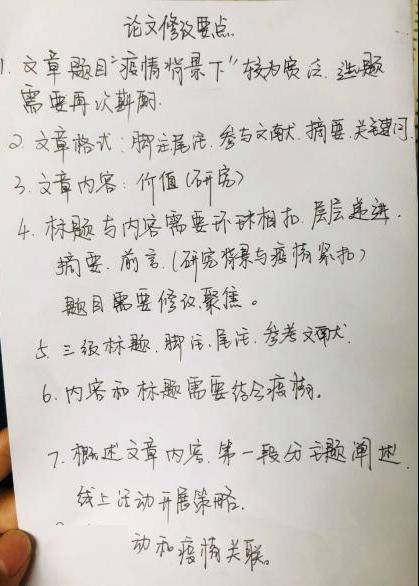 论文修改要点
1. 文章题目“疫情背景下”较为宽泛. 选题
需要再次斟酌.
2. 文章格式: 脚注尾注. 参考文献. 摘要. 关键词
3. 文章内容: 价值(研究)
4. 标题与内容需要环环相扣. 层层递进.
摘要. 前言. (研究背景与疫情紧扣)
题目需要修改.聚焦。
5. 三级标题. 脚注. 尾注. 参考文献.
6. 内容和标题需要结合疫情。
7. 概述文章内容. 第一段分主题阐述.
线上活动开展策略.
动和疫情关联。